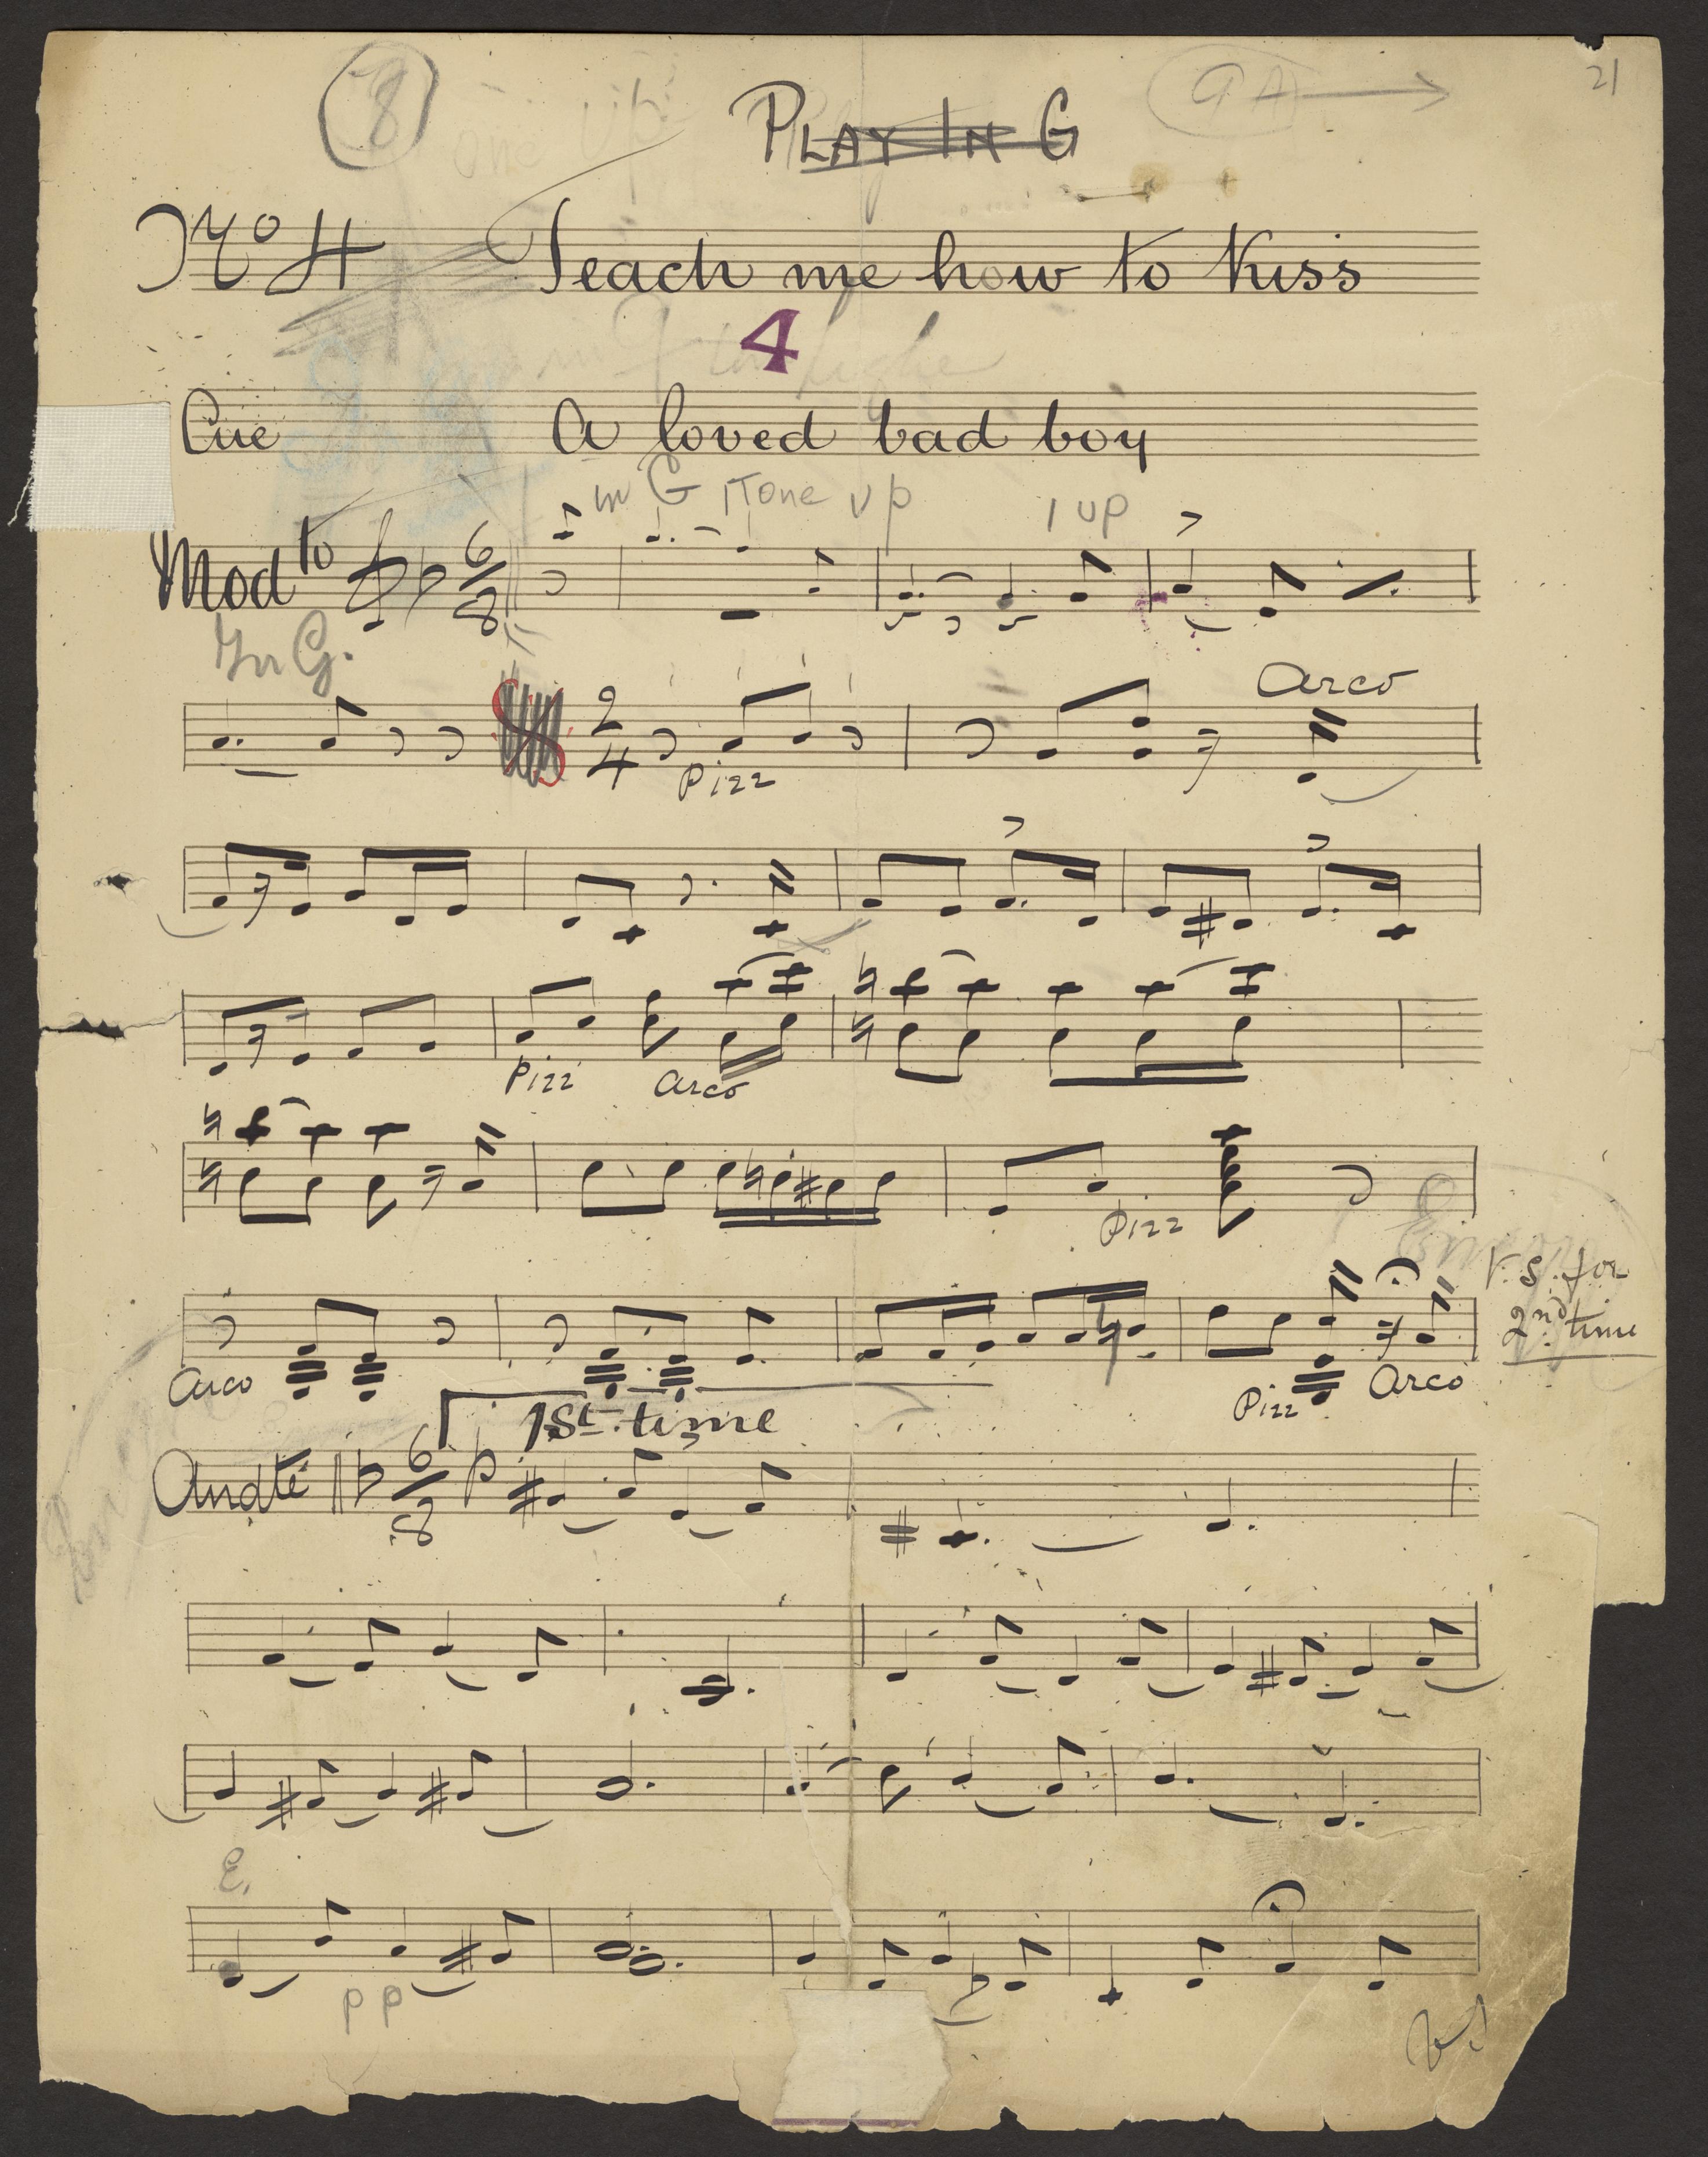 8 9A 21
one up
PLAY IN G
No 4 Teach me how to Kiss
4
Cue A loved bad boy
in G 1 Tone up 1 up
Modto 6/8
In G.
Arco
2/4 Pizz
Pizz Arco
Pizz
V. S. for
2nd time
Arco Pizz Arco
1st time
Andte 6/8 p
E.
pp